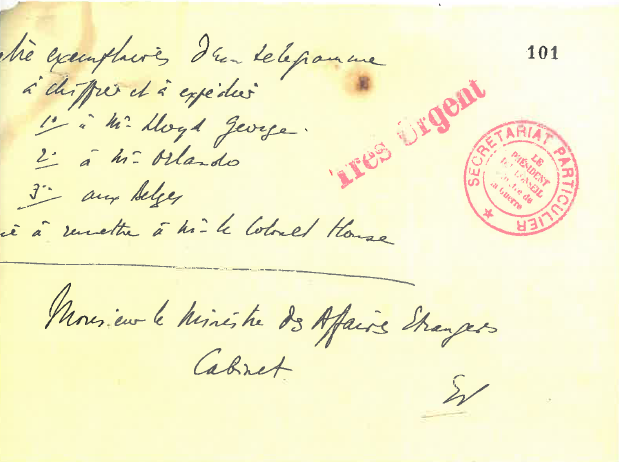 101
exemplaires d'un telegramme
à chiffrer et à expédier
1º à Mr Lloyd George
2º à Mr Orlando
3º aux Belges
à remettre à Mr le Colonel House
Très Urgent
SECRETARIAT PARTICULIER
LE
PRÉSIDENT
CONSEIL
Guerre
Monsieur le Ministre des Affaires Etrangères
Cabinet